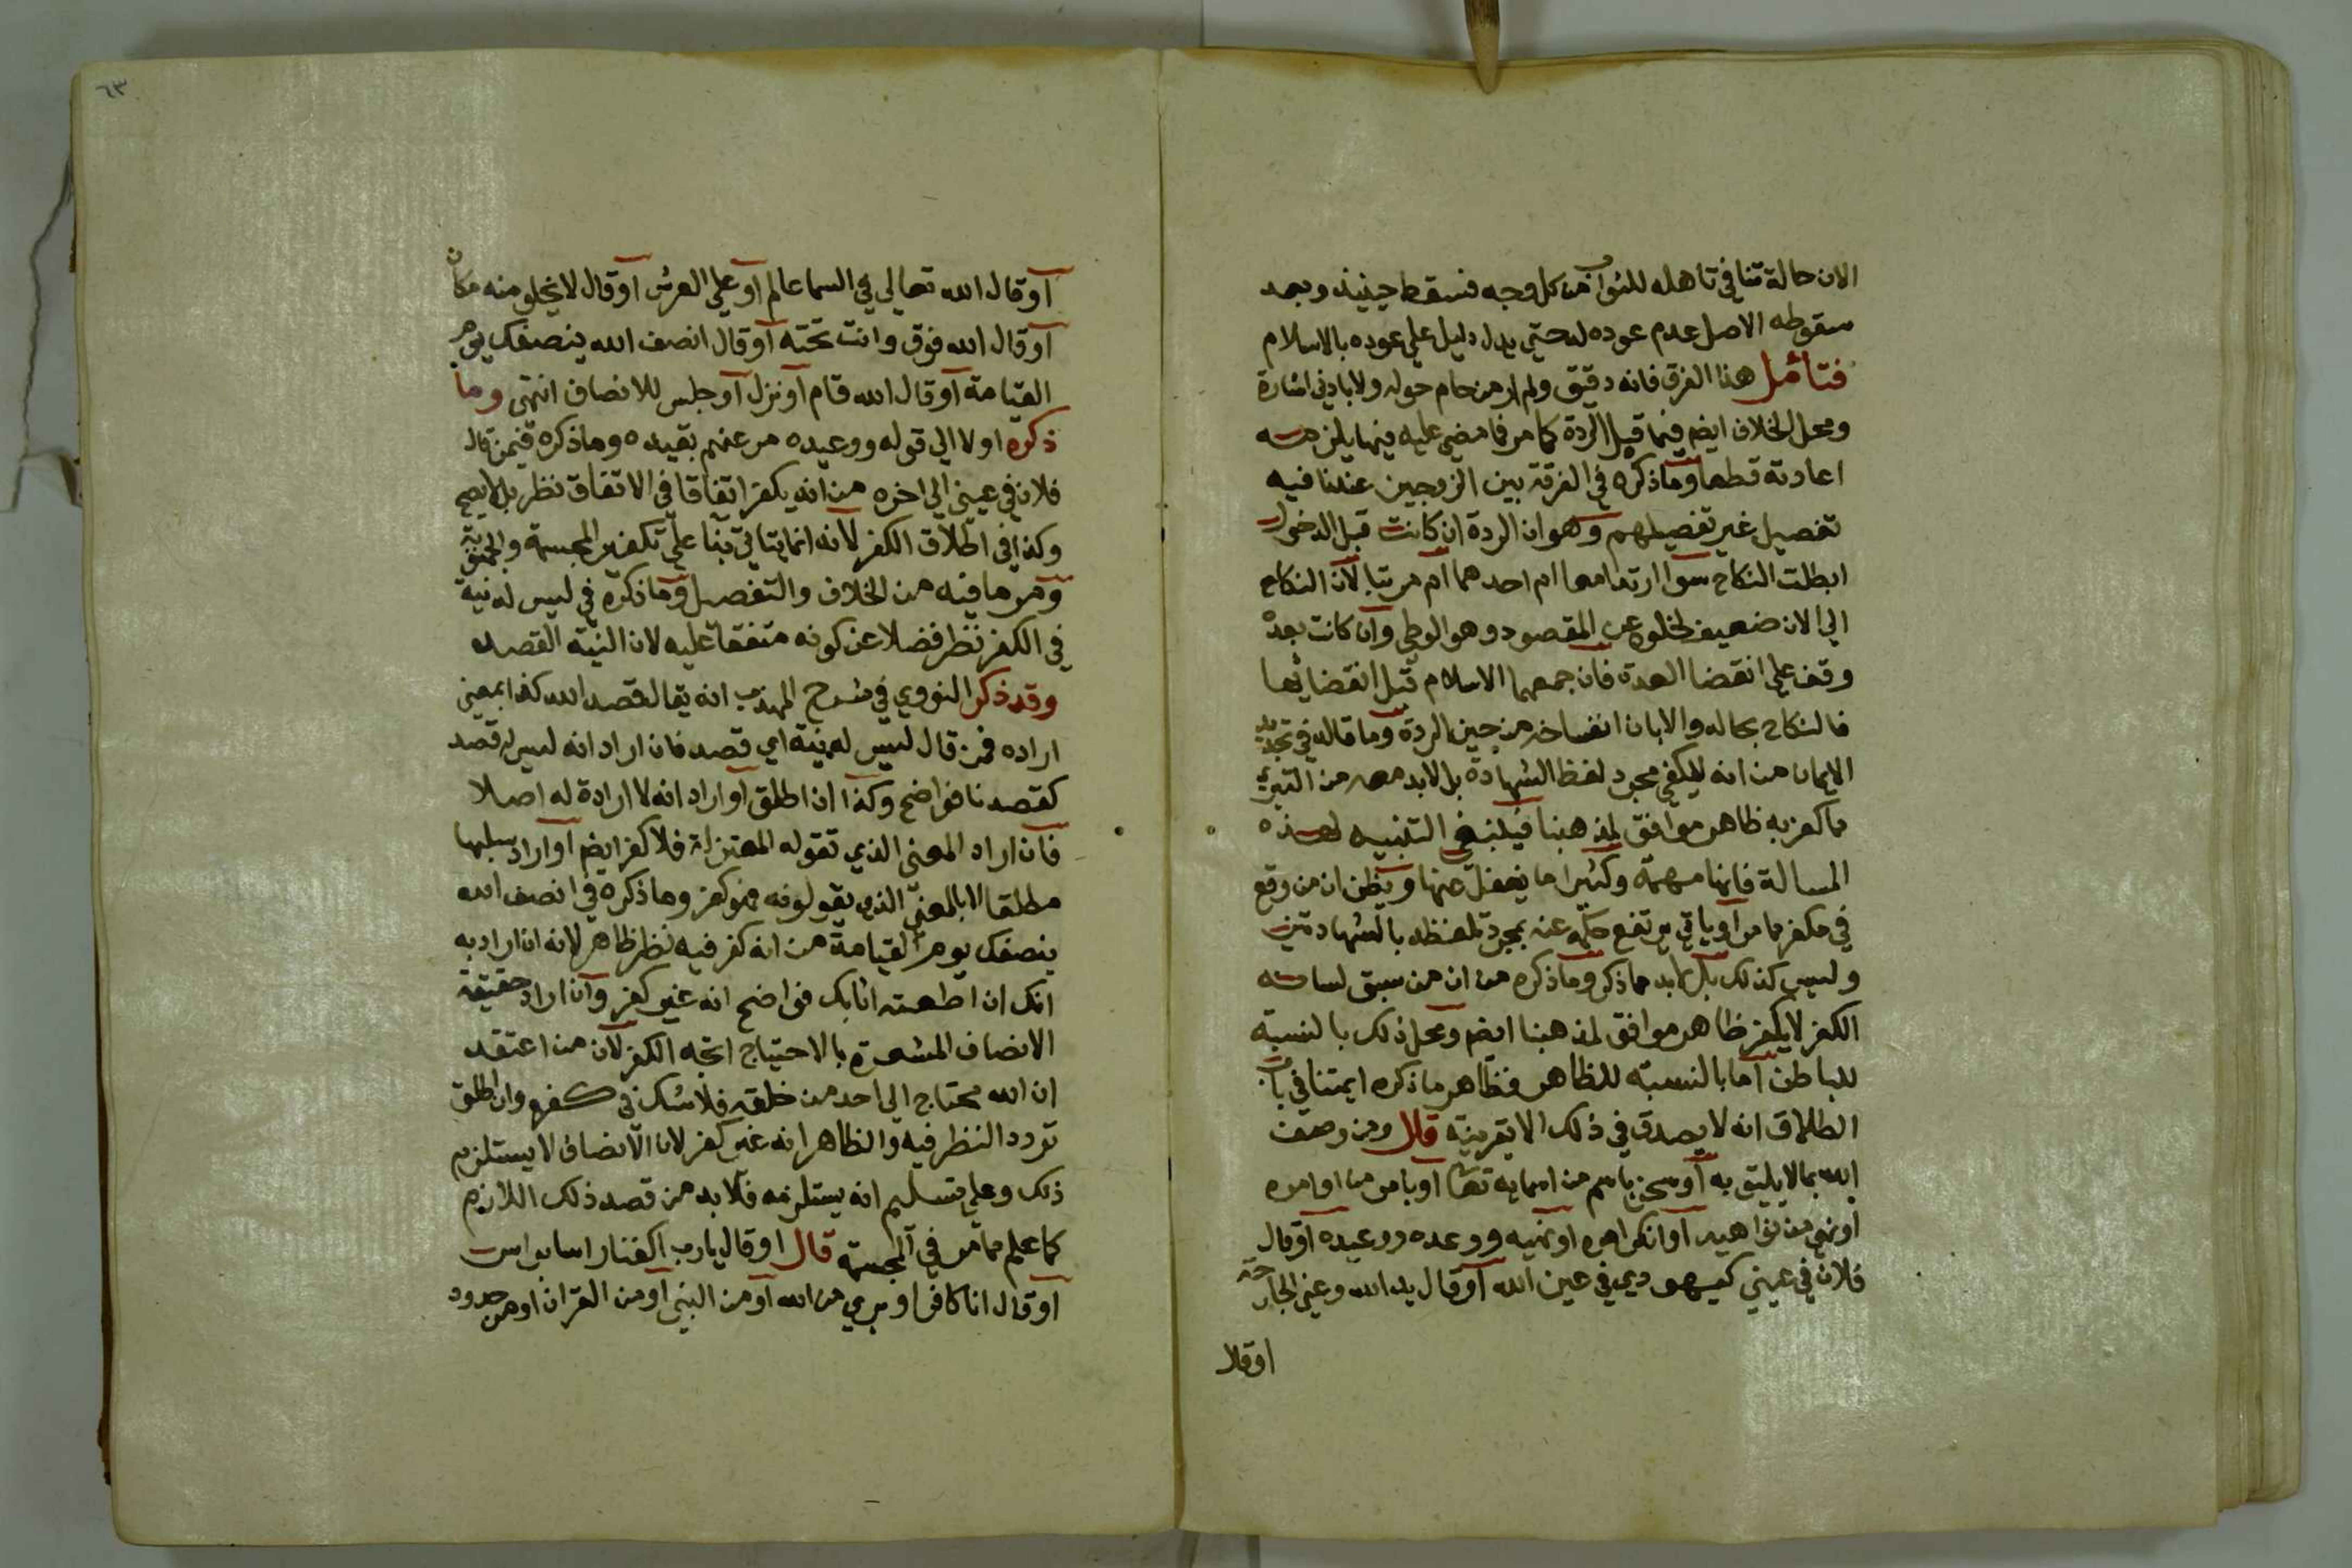 الان حالة تنافي تاهله للثواب من كل وجه فسقط حينيذ وبعد
سقوطه الاصل عدم عوده له حتي يدل دليل علي عوده بالاسلام
فتأمل هذا الفرق فانه دقيق ولم ار من حام حوله ولا بادني اشارة
ومحل الخلاف ايضم فيما قبل الردة كما مر فما مضي عليه فيها يلزمه
اعادته قطعا وما ذكره في الفرقة بين الزوجين عندنا فيه
تفصيل غير تفصيلهم وهو ان الردة ان كانت قبل الدخول
ابطلت النكاح سوا ارتدا معا ام احدهما ام مرتبا لان النكاح
الي الان ضعيف لخلوه عن المقصود وهو الوطي وان كانت بعده
وقف علي انقضا العدة فان جمعهما الاسلام قبل انقضايها
فالنكاح بحاله والا بان انفساخه من حين الردة وما قاله في تجديد
الايمان من انه لا يكفي مجرد لفظ الشهادة بل لابد معه من التبري
مما كفر به ظاهر موافق لمذهبنا فينبغي التنبيه لهذه
المسالة فانها مهمة وكثيرا ما يغفل عنها ويظن ان من وقع
في مكفر مما مر او ياتي يرتفع حكمه عنه بمجرد تلفظه بالشهادتين
وليس كذلك بل لابد مما ذكر وما ذكره من ان من سبق لسانه
الكفر لا يكفر ظاهر موافق لمذهبنا ايضم ومحل ذلك بالنسبة
للباطن اما بالنسبة للظاهر فظاهر ما ذكره ايمتنا في باب
الطلاق انه لا يصدق في ذلك الا بقرينة قال ومن وصف
الله بما لا يليق به او سخر باسم من اسمايه تعا او بامر من اوامره
او نهي من نواهيه او انكر امره او نهيه ووعده ووعيده او قال
فلان في عيني كيهودي في عين الله او قال يد الله وعني الجارحة
او قال
٦٣
او قال الله تعالي في السما عالم او علي العرش او قال لا يخلو منه مكان
او قال الله فوق وانت تحته او قال انصف الله ينصفك يوم
القيامة او قال الله قام او نزل او جلس للانصاف انتهي وما
ذكره اولا الي قوله ووعيده مر عنهم بقيده وما ذكره فيمن قال
فلان في عيني الي اخره من انه يكفر اتفاقا في الاتفاق نظر بل لا يصح
وكذا في اطلاق الكفر لانه انما ياتي بنا علي تكفير المجسمة والجهوية
ومر ما فيه من الخلاف والتفصيل وما ذكره في ليس له نية
في الكفر نظر فضلا عن كونه متفقا عليه لان النية القصد
وقد ذكر النووي في شرح المهذب انه يقال قصد الله كذا بمعني
اراده فمن قال ليس له نية اي قصد فان اراد انه ليس له قصد
كقصدنا فواضح وكذا ان اطلق او اراد انه لا ارادة له اصلا
فان اراد المعني الذي تقوله المعتزلة فلا كفر ايضم او اراد سلبها
مطلقا لا بالمعني الذي يقولونه فهو كفر وما ذكره في انصف الله
ينصفك يوم القيامة من انه كفر فيه نظر ظاهر لانه ان اراد به
انك ان اطعته اثابك فواضح انه غير كفر وان اراد حقيقة
الانصاف المشعرة بالاحتياج اتجه الكفر لان من اعتقد
ان الله محتاج الي احد من خلقه فلا شك في كفره وان اطلق
تردد النظر فيه والظاهر انه غير كفر لان الانصاف لا يستلزم
ذلك وعلي تسليم انه يستلزمه فلا بد من قصد ذلك اللازم
كما علم مما مر في المجسمة قال او قال يارب
او قال انا كافر او بري من الله او من النبي او من القران او من حدود